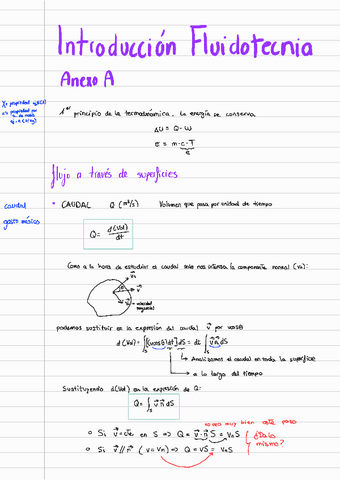 Introducción Fluidotecnia
Anexo A
1er principio de la termodinámica. La energía se conserva
ΔU = Q - W
E = m·c·T
flujo a través de superficies
caudal
gasto másico
• CAUDAL Q (m³/s) Volumen que pasa por unidad de tiempo
Q = d(Vol)/dt
Como a la hora de estudiar el caudal solo nos interesa la componente normal (vn):
velocidad
tangencial
podemos sustituir en la expresión del caudal v⃗ por v cosθ
d(Vol) = ∫s [(v cosθ) dt] dS = dt ∫s v⃗ n⃗ dS
Analizamos el caudal en toda la superficie
a lo largo del tiempo
Sustituyendo d(Vol) en la expresión de Q:
Q = ∫s v⃗ n⃗ dS
no veo muy bien este paso
o Si v⃗ = cte en S ⇒ Q = v⃗·n⃗ S = vn S
o Si v⃗ // n⃗ (v = vn) ⇒ Q = vS = vn S
¿Da lo
mismo?